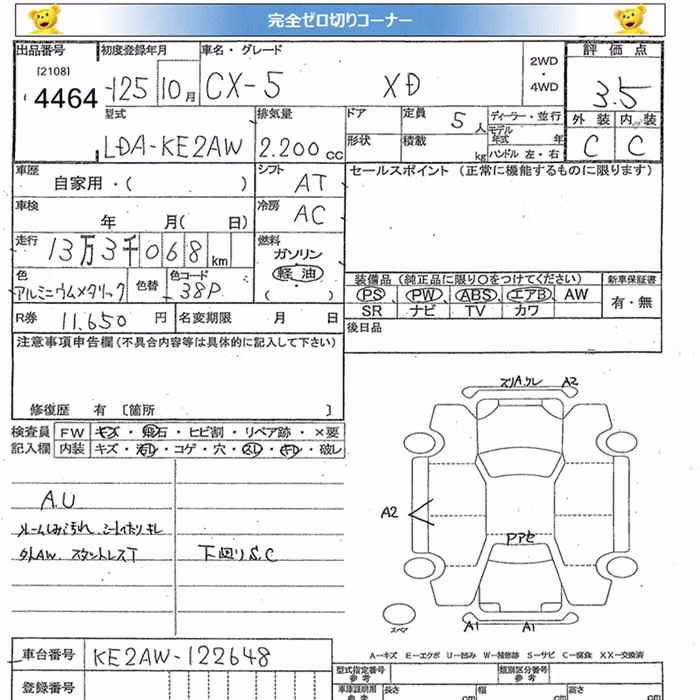 完全ゼロ切りコーナー
出品番号 初度登録年月 車名・グレード 2WD・4WD 評価点
[2108]
4464 125 10月 CX-5 XD 3.5
型式 排気量 ドア 定員 5人 ディーラー・並行 外装 内装
LDA-KE2AW 2.200cc 形状 積載 kg モデル年式 年 ハンドル 左・右 C C
車歴 シフト セールスポイント(正常に機能するものに限ります)
自家用・( ) AT
車検 冷房
年 月( 日) AC
走行 燃料
13万3千068km ガソリン
軽・油
( )
色 色替 色コード 装備品(純正品に限り○をつけてください) 新車保証書
アルミニウムメタリック 38P PS、PW、ABS、エアB、AW 有・無
SR ナビ TV カワ
R券 11.650円 名変期限 月 日 後日品
注意事項申告欄(不具合内容等は具体的に記入して下さい)
修復歴 有 [箇所 ]
検査員 FW キズ・飛石・ヒビ割・リペア跡・×要
記入欄 内装 キズ・汚れ・コゲ・穴・スレ・キレ・破レ
A.U
外AW. スタットレスT 下廻りS.C
A2
A2
A1 A1
スペア
車台番号 KE2AW-122648
登録番号
A-キズ E-エクボ U-凹み W-補修跡 S-サビ C-腐食 XX-交換済
型式指定番号 参考 類別区分番号 参考
車庫証明用 参考 長さ cm 幅 cm 高さ cm